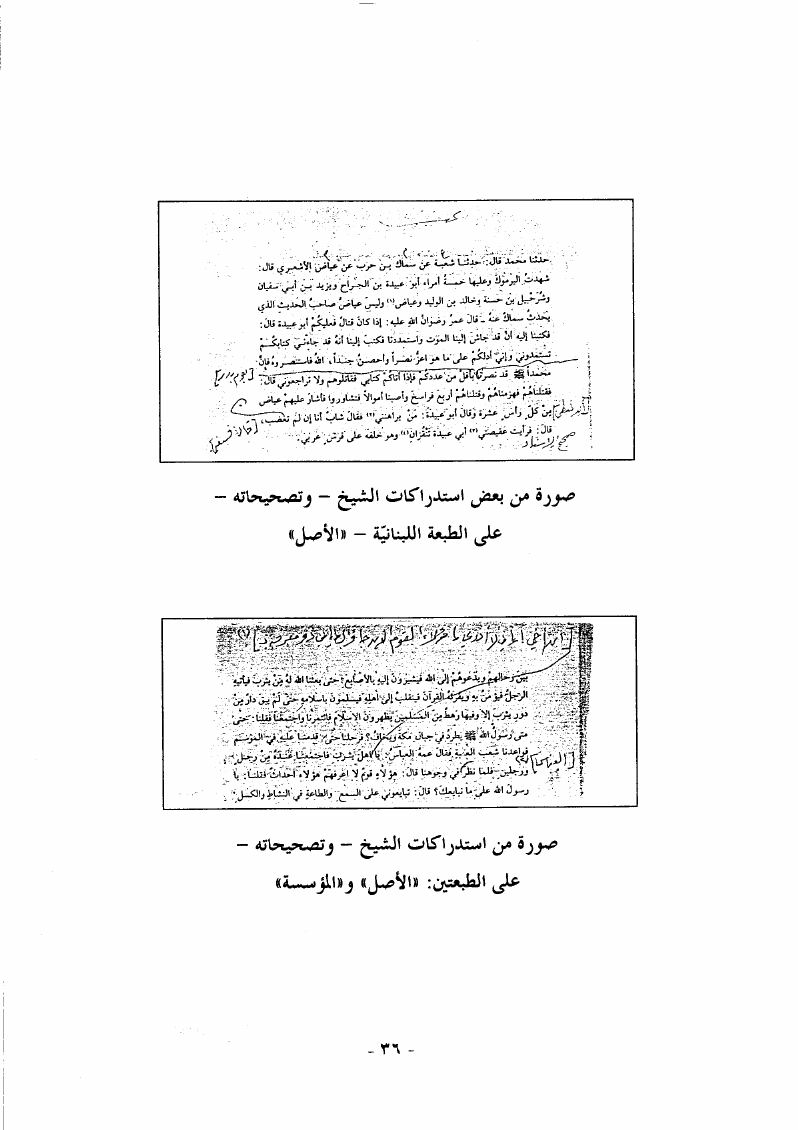 حدثنا محمد قال: حدثنا شعبة عن سماك بن حرب عن عياض الأشعري قال:
شهدت اليرموك وعليها خمسة أمراء أبو عبيدة بن الجراح ويزيد بن أبي سفيان
وشرحبيل بن حسنة وخالد بن الوليد وعياض(١) وليس عياض صاحب الحديث الذي
يحدث سماك عنه ـ قال عمر رضوان الله عليه: إذا كان قتال فعليكم أبو عبيدة قال:
فكتبنا إليه أن قد جاش إلينا الموت واستمددنا فكتب إلينا أنه قد جاءني كتابكم
تستمدوني وإني أدلكم على ما هو أعز نصراً وأحصن جنداً، الله فاستنصروه فإن
محمداً ﷺ قد نصر بأقل من عددكم فإذا أتاكم كتابي فقاتلوهم ولا تراجعوني قال:
فقتلناهم فهزمناهم وقتلناهم أربع فراسخ وأصبنا أموالاً فتشاوروا فأشار عليهم عياض
عن كل رأس عشرة وقال أبو عبيدة: من يراهنني(٢) فقال شاب أنا إن لم تغضب،
قال: فرأيت عقيصتي(٣) أبي عبيدة تنقزان(٤) وهو خلفه على فرس عربي.
صحيح الإسناد
صورة من بعض استدراكات الشيخ – وتصحيحاته –
على الطبعة اللبنانيّة – «الأصل»
بين رحالهم ويدعوهم إلى الله فيشيرون إليه بالأصابع حتى بعثنا الله له من يثرب فيأتيه
الرجل فيؤمن به ويقرئه القرآن فينقلب إلى أهله فيسلمون بإسلامه حتى لم يبق دار من
دور يثرب إلا وفيها رهط من المسلمين يظهرون الإسلام فائتمرنا واجتمعنا فقلنا: حتى
متى رسول الله ﷺ يطرد في جبال مكة ويخاف؟ فرحلنا حتى قدمنا عليه في الموسم
فواعدنا شعب العقبة فقال عمه العباس: يا أهل يثرب فاجتمعنا عنده من رجل
ورجلين فلما نظر في وجوهنا قال: هؤلاء قوم لا أعرفهم هؤلاء أحداث فقلنا: يا
رسول الله على ما نبايعك؟ قال: تبايعوني على السمع والطاعة في النشاط والكسل
صورة من استدراكات الشيخ – وتصحيحاته –
على الطبعتين: «الأصل» و«المؤسسة»
- ٣٦ -